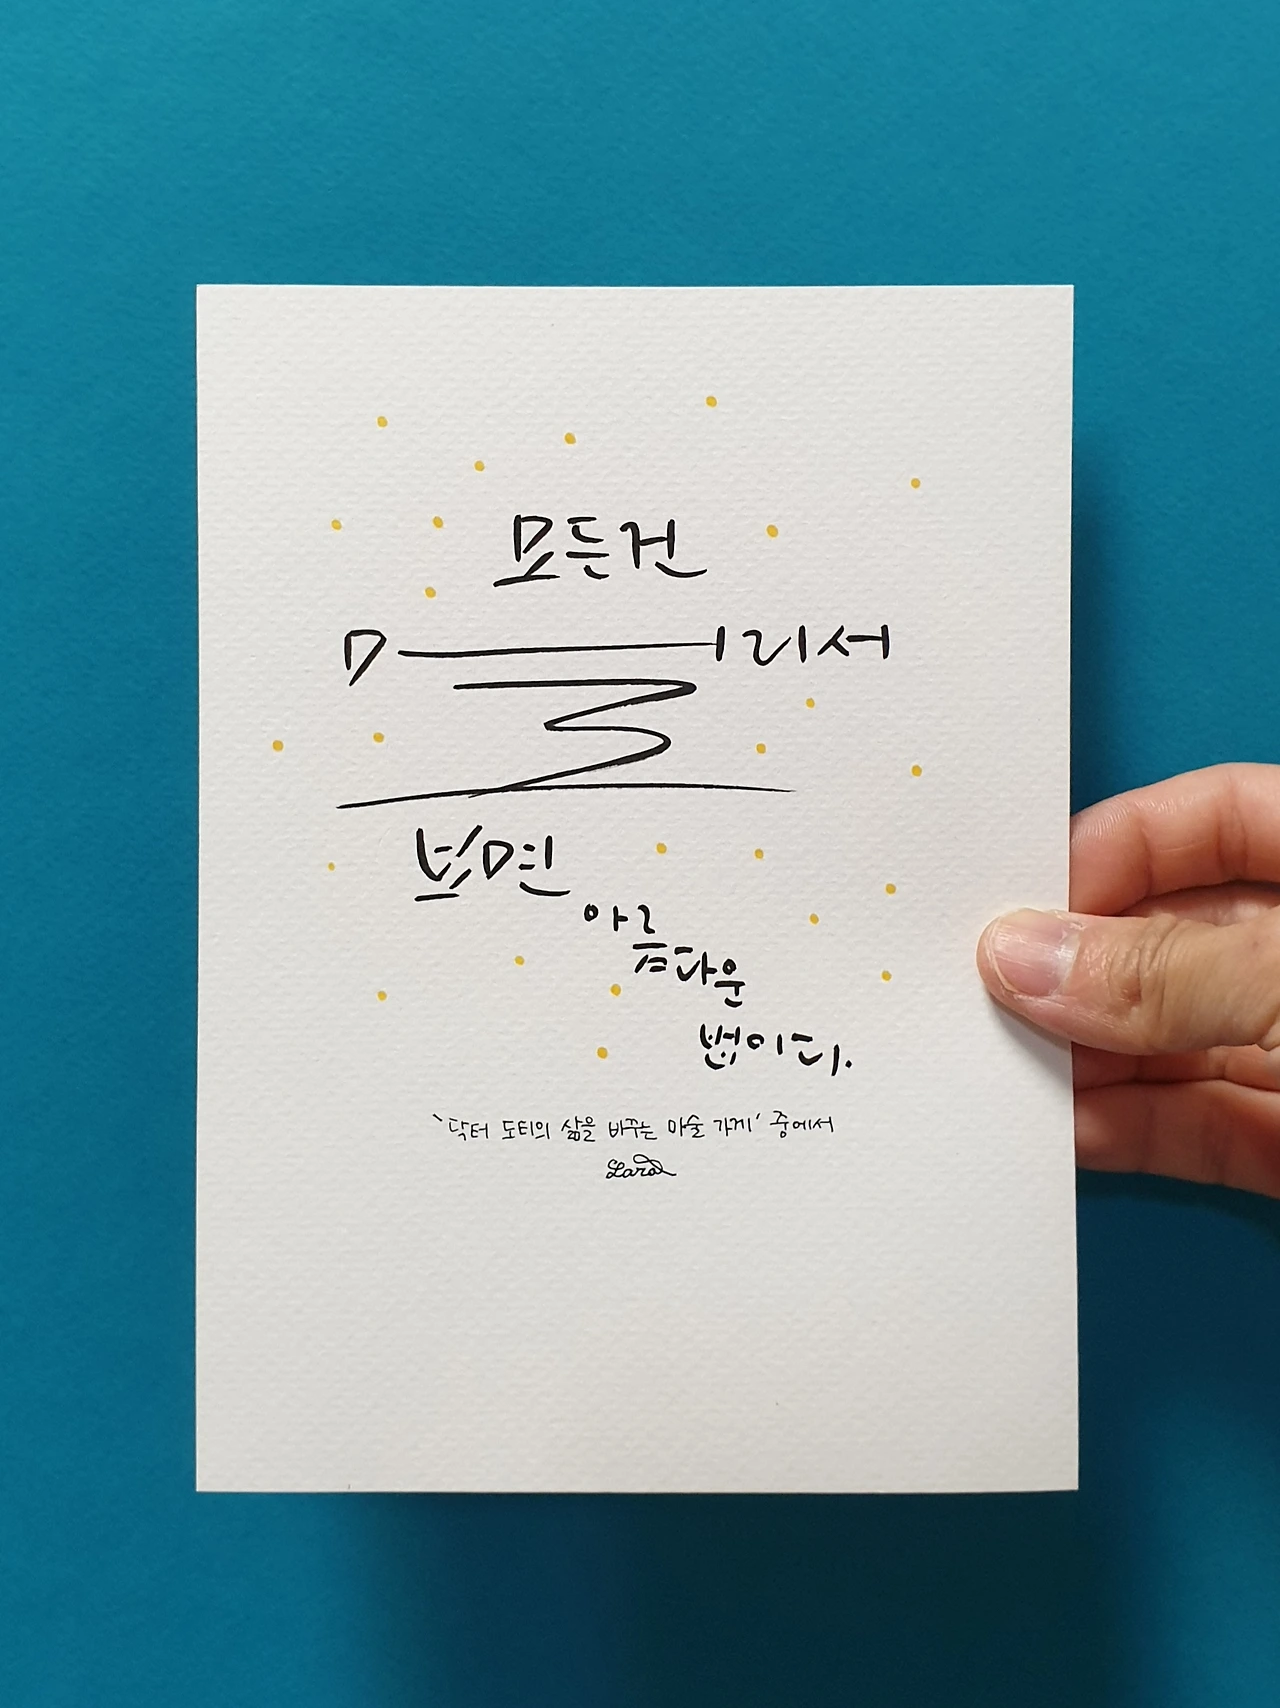 모든건
멀리서
보면
아름다운
법이다.
'닥터 도티의 삶을 바꾸는 마술 가게' 중에서
Lara